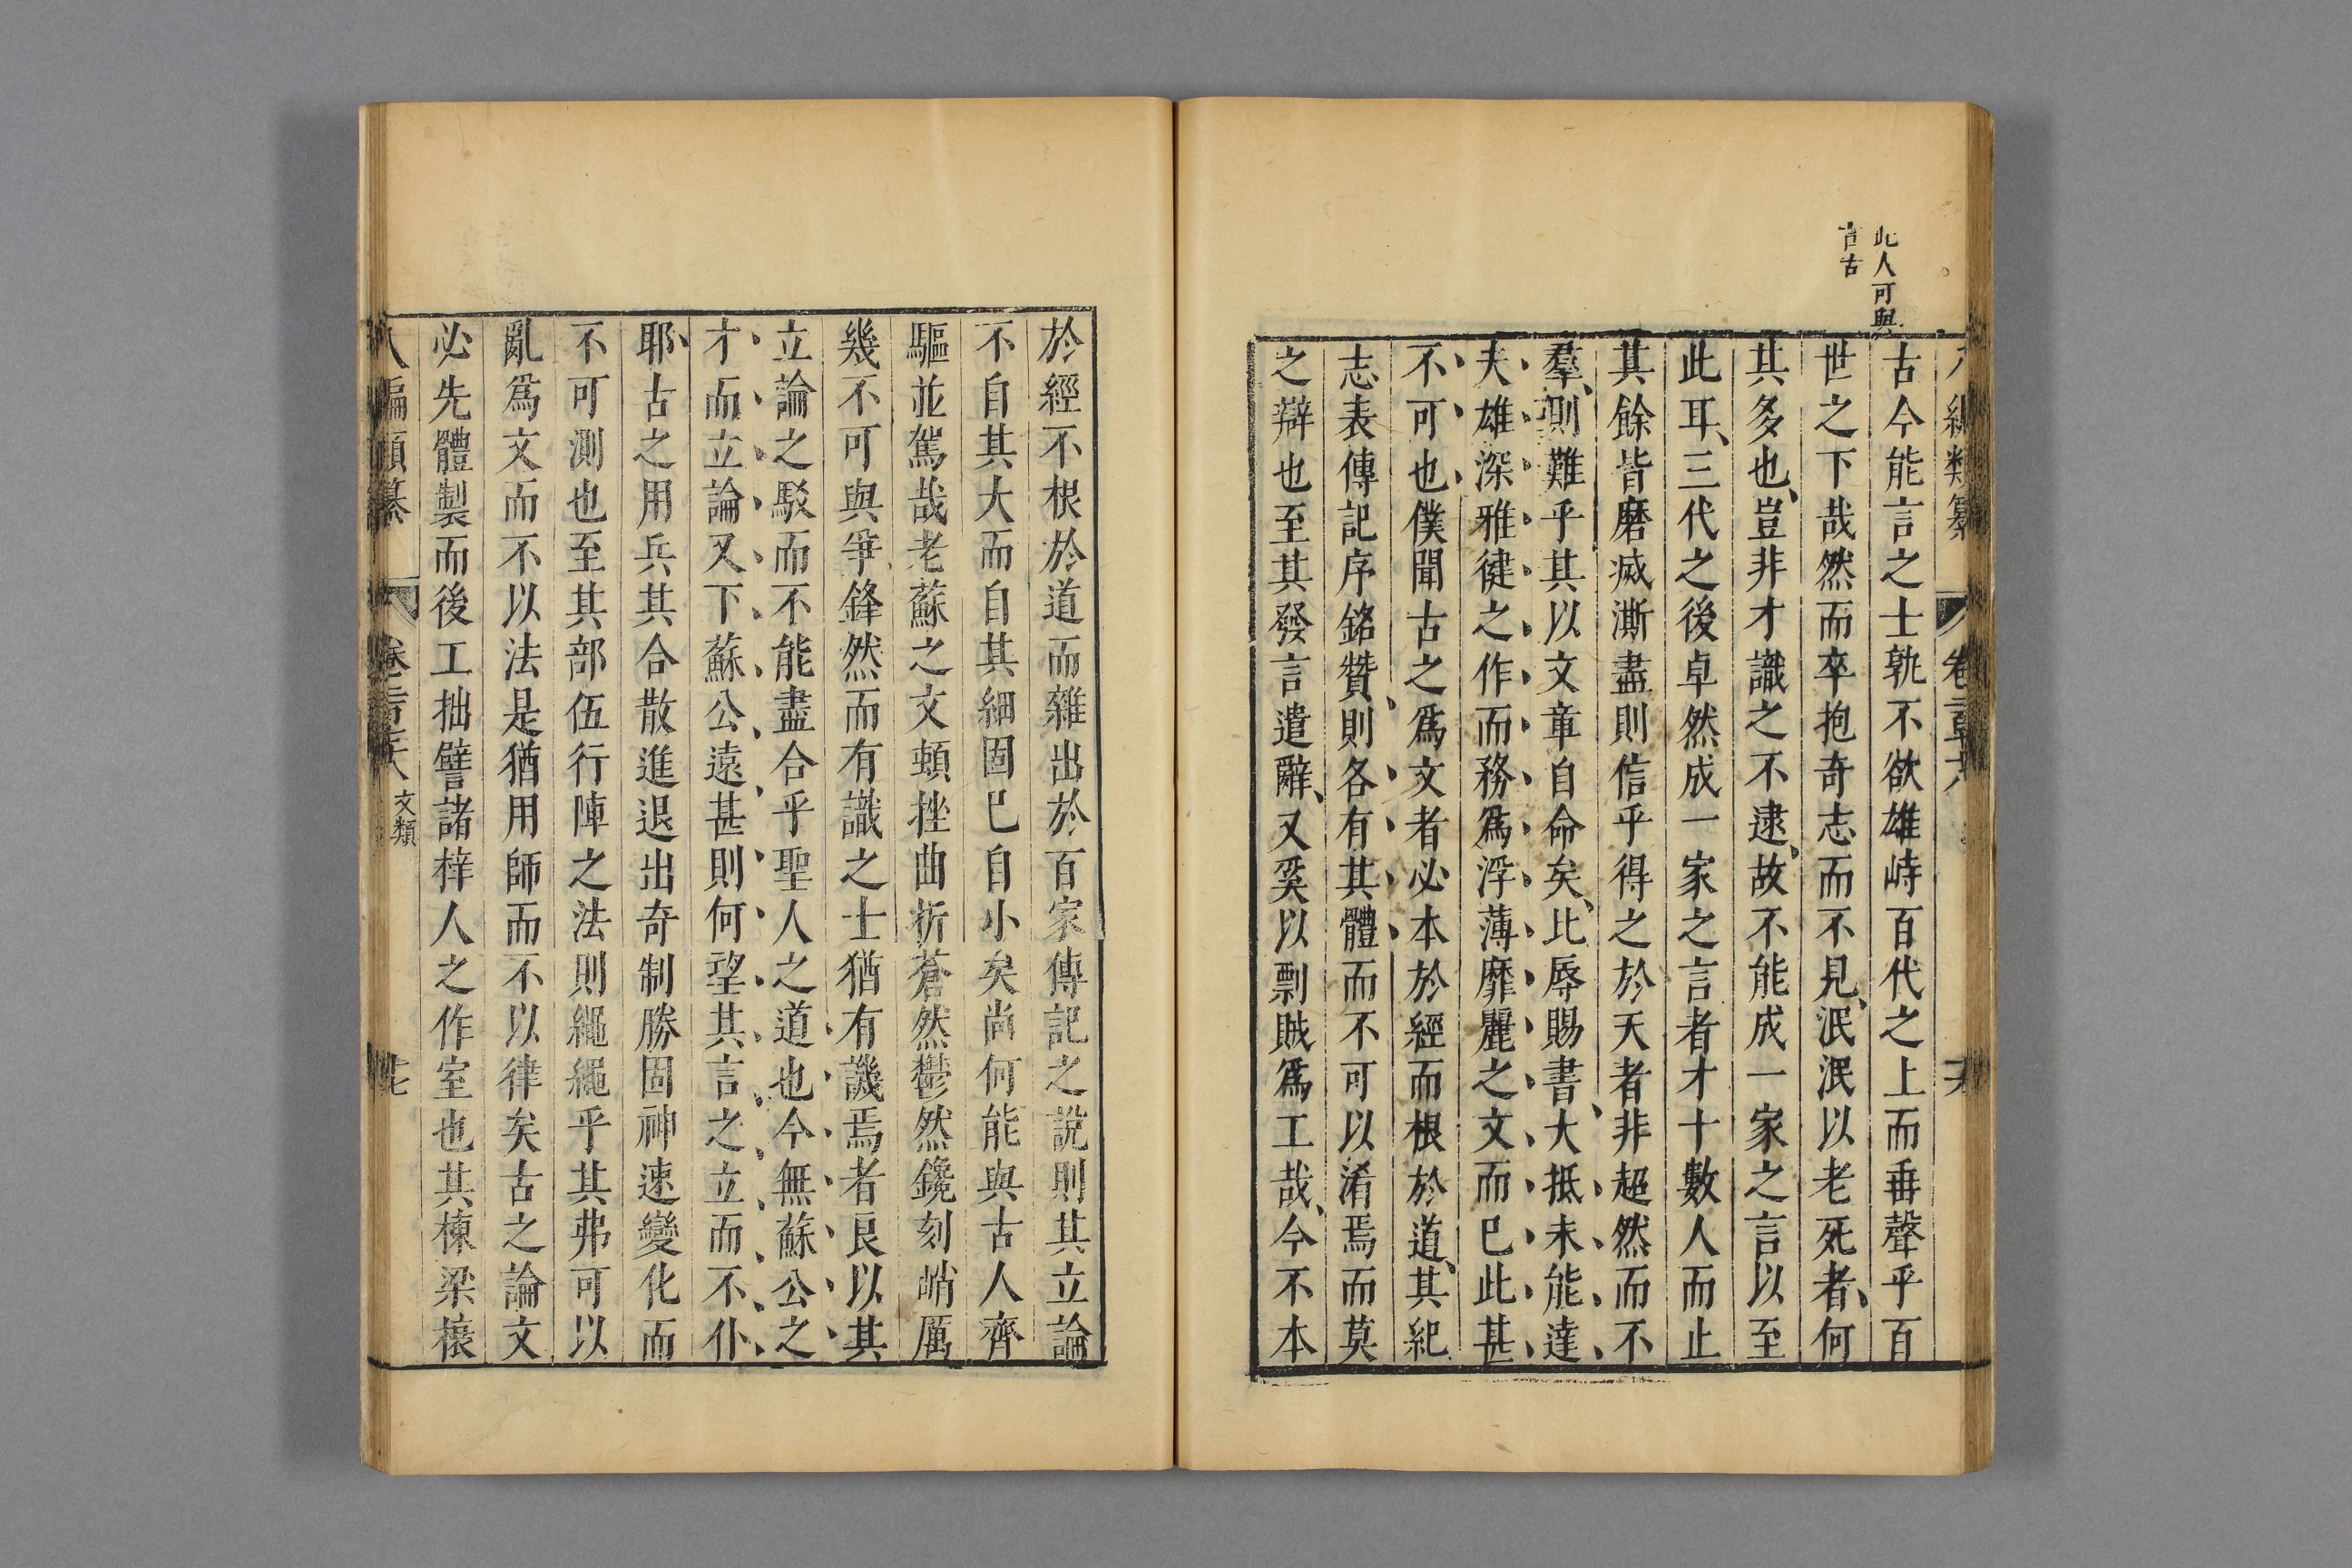 此人可與
言古
古今能言之士孰不欲雄峙百代之上而垂聲乎百
世之下哉然而卒抱奇志而不見泯泯以老死者何
其多也豈非才識之不逮故不能成一家之言以至
此耳三代之後卓然成一家之言者才十數人而止
其餘皆磨滅澌盡則信乎得之於天者非超然而不
羣則難乎其以文章自命矣比辱賜書大抵未能達
夫雄深雅健之作而務爲浮薄靡麗之文而已此甚
不可也僕聞古之爲文者必本於經而根於道其紀
志表傳記序銘贊則各有其體而不可以淆焉而莫
之辯也至其發言遣辭又奚以剽賊爲工哉今不本
於經不根於道而雜出於百家傳記之說則其立論
不自其大而自其細固已自小矣尚何能與古人齊
驅並駕哉老蘇之文頓挫曲折蒼然鬱然鑱刻峭厲
幾不可與爭鋒然而有識之士猶有譏焉者良以其
立論之駁而不能盡合乎聖人之道也今無蘇公之
才而立論又下蘇公遠甚則何望其言之立而不仆
耶古之用兵其合散進退出奇制勝固神速變化而
不可測也至其部伍行陣之法則繩繩乎其弗可以
亂爲文而不以法是猶用師而不以律矣古之論文
必先體製而後工拙譬諸梓人之作室也其棟梁榱
八編類纂 卷 文類 十七